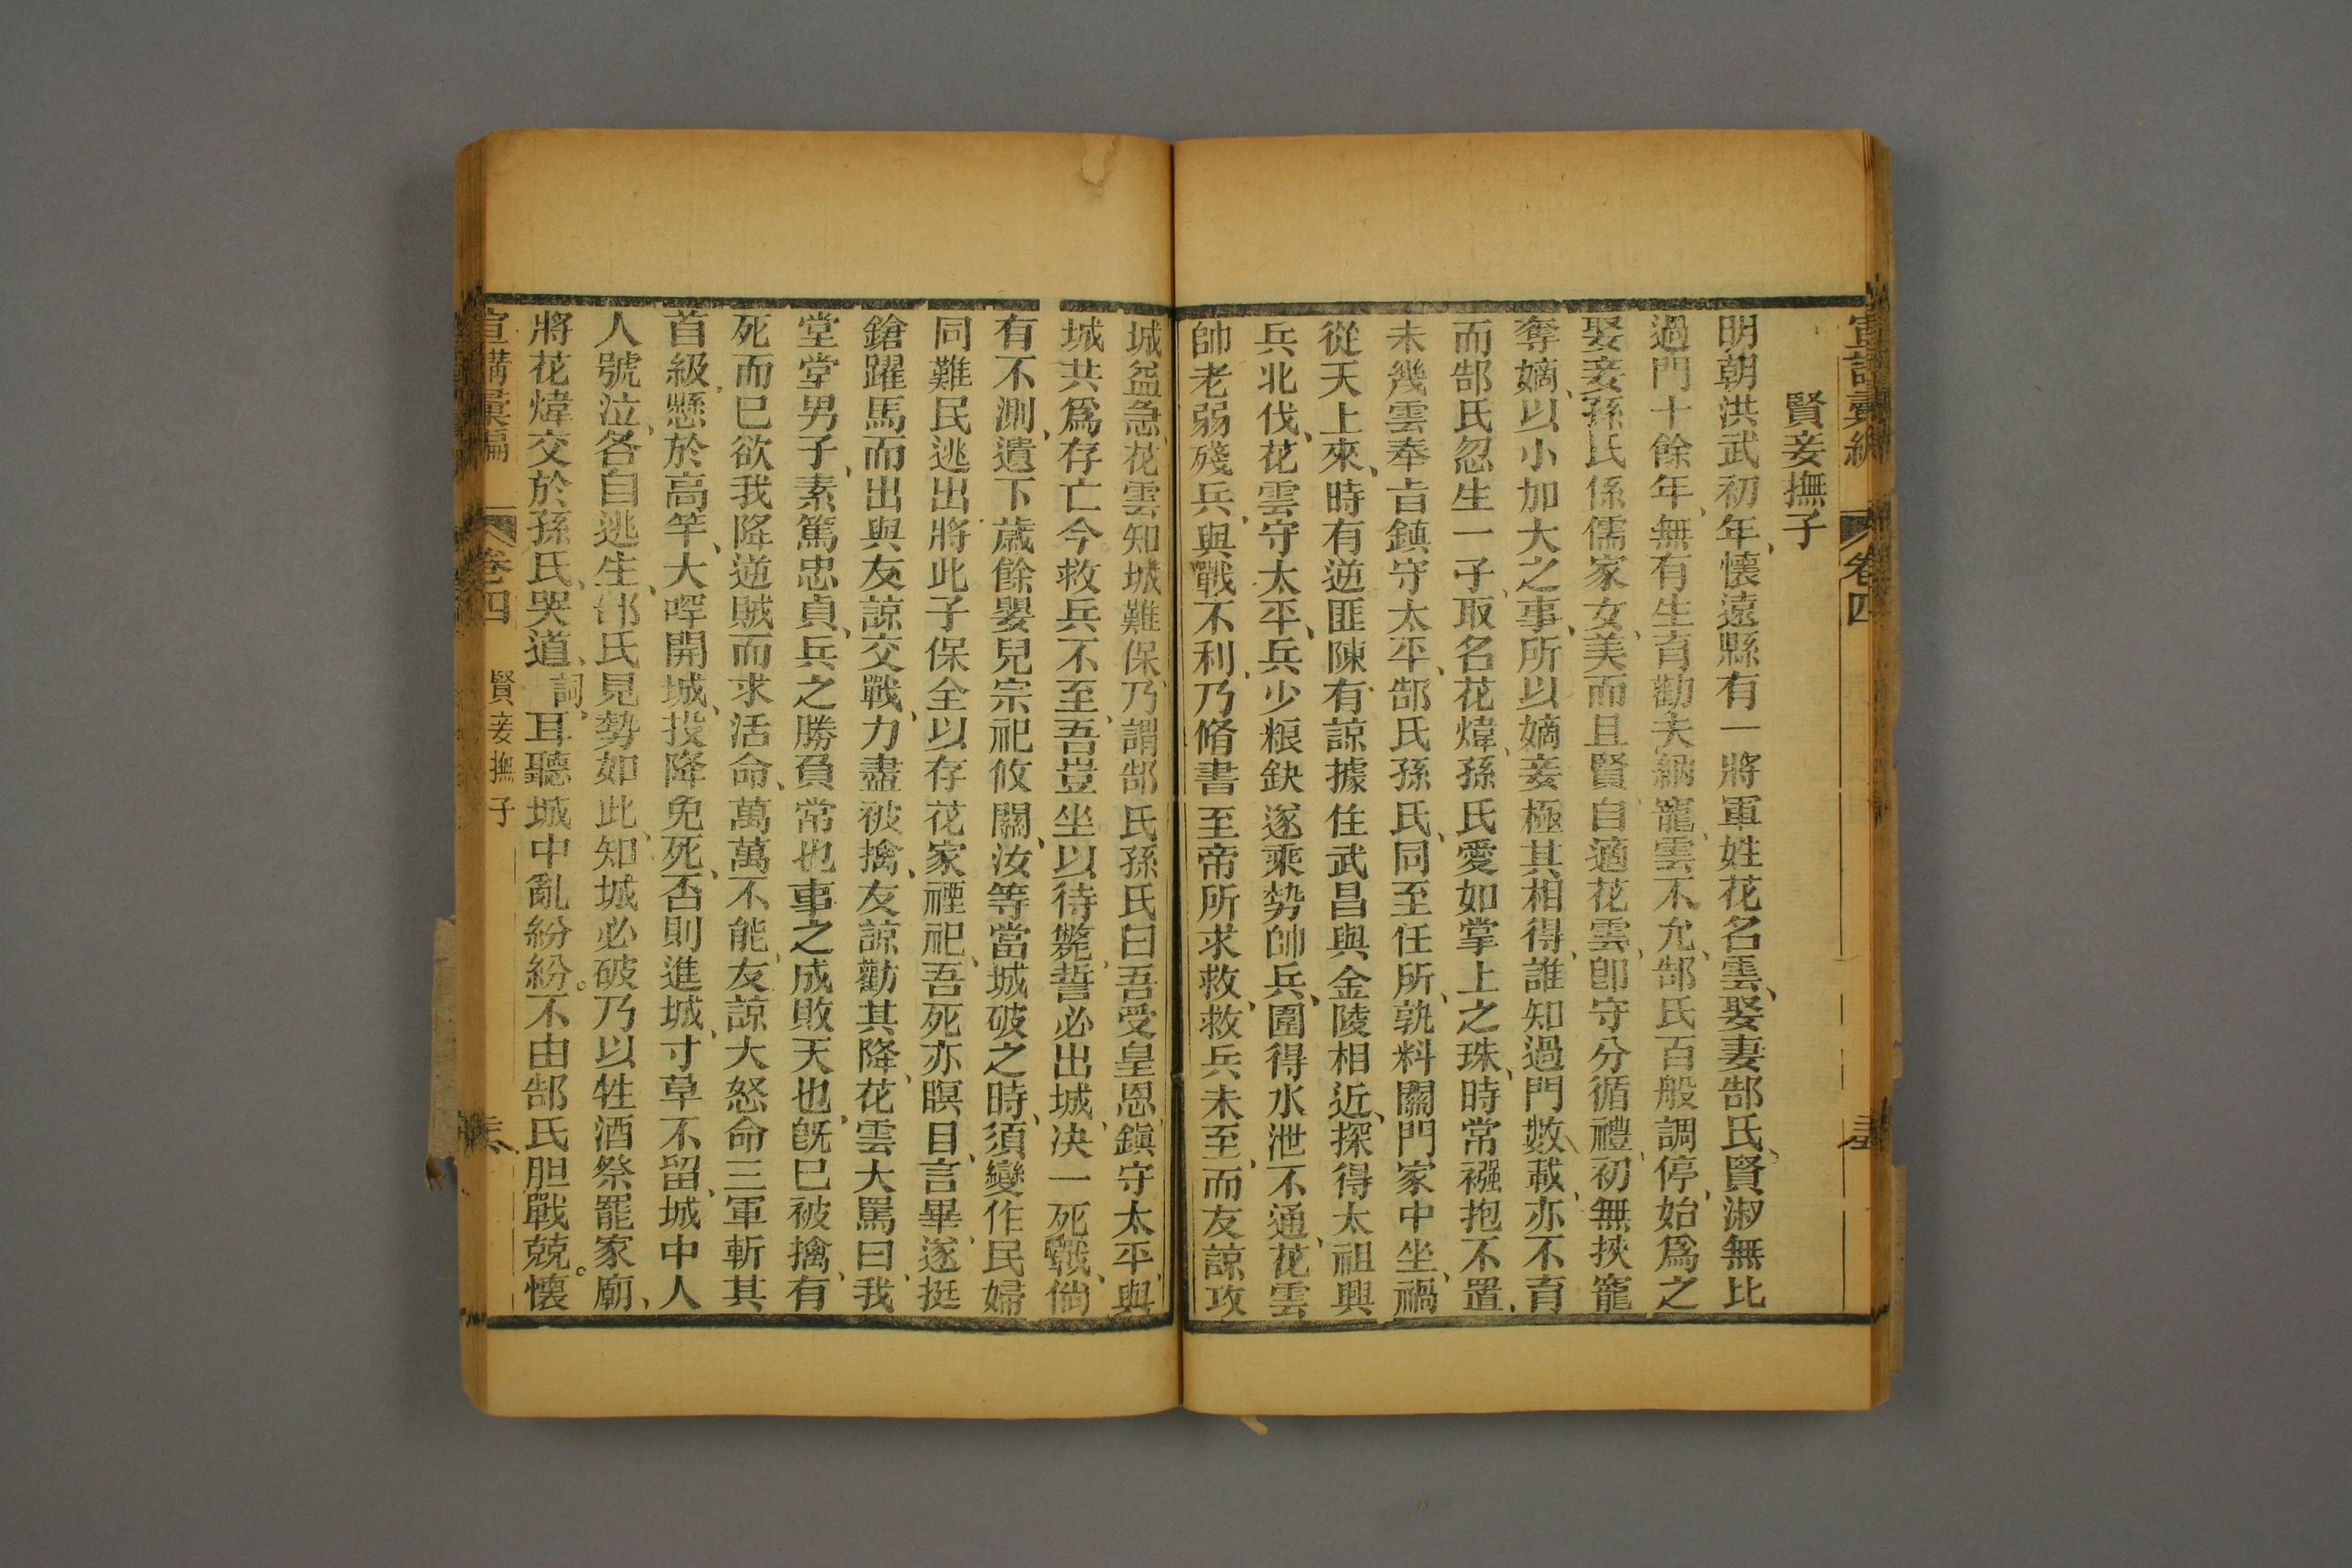 宣講彙編　卷四
賢妾撫子
明朝洪武初年、懷遠縣有一將軍姓花名雲、娶妻郜氏、賢淑無比
過門十餘年、無有生育勸夫納寵、雲不允、郜氏百般調停、始爲之
娶妾孫氏係儒家女、美而且賢自適花雲、卽守分循禮、初無挾寵
奪嫡、以小加大之事、所以嫡妾極其相得、誰知過門數載、亦不育
而郜氏忽生一子、取名花煒、孫氏愛如掌上之珠、時常襁抱不置、
未幾雲奉旨鎮守太平、郜氏孫氏、同至任所、孰料關門家中坐、禍
從天上來、時有逆匪陳有諒據住武昌與金陵相近、探得太祖興
兵北伐、花雲守太平、兵少粮缺遂乘勢帥兵、圍得水泄不通、花雲
帥老弱殘兵、與戰不利、乃脩書至帝所求救、救兵未至、而友諒攻
城益急、花雲知城難保、乃謂郜氏孫氏曰吾受皇恩、鎮守太平、與
城共爲存亡今救兵不至、吾豈坐以待斃、誓必出城、决一死戰、倘
有不測、遺下歲餘嬰兒宗祀攸關、汝等當城破之時、須變作民婦
同難民逃出將此子保全以存花家禋祀、吾死亦瞑目、言畢、遂挺
鎗躍馬而出與友諒交戰、力盡被擒、友諒勸其降、花雲大罵曰、我
堂堂男子、素篤忠貞、兵之勝負常也事之成敗天也、旣已被擒、有
死而已欲我降逆賊而求活命、萬萬不能、友諒大怒命三軍斬其
首級、懸於高竿、大呼開城、投降免死、否則進城、寸草不留、城中人
人號泣、各自逃生、郜氏見勢如此、知城必破乃以牲酒祭罷家廟、
將花煒交於孫氏、哭道、詞、耳聽城中亂紛紛。不由郜氏胆戰兢。懷
宣講彙編　卷四　賢妾撫子